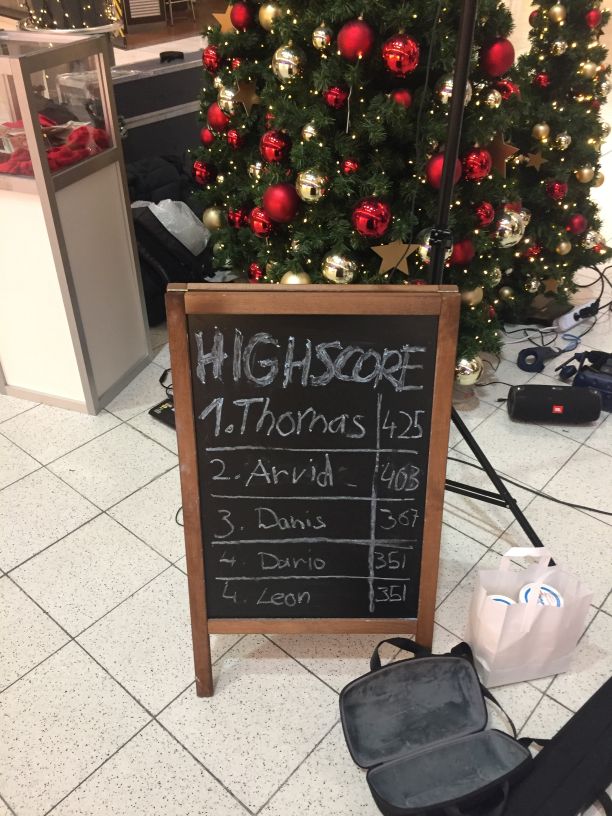 HIGHSCORE
1. Thomas 425
2. Arvid - 403
3. Danis 367
4. Dario 351
4. Leon 351
JBL